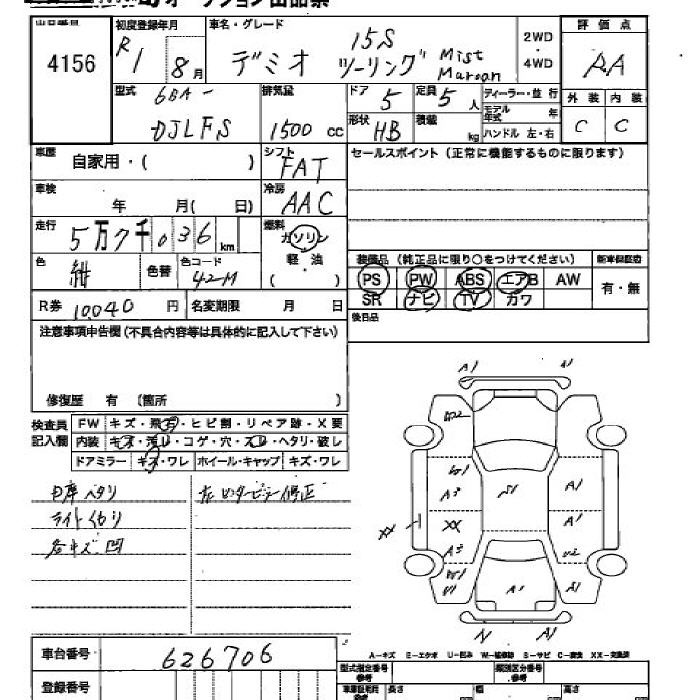 オークション出品票
出品番号 初度登録年月 車名・グレード 15S 2WD 評価点
4156 R1 8月 デミオ ツーリング Mist Maroon 4WD RA
型式 6BA- 排気量 ドア 5 定員 5人 ディーラー・並行 外装 内装
DJLFS 1500cc 形状 HB 積載 kg モデル年式 年 C C
ハンドル 左・右
車歴 自家用・( ) シフト FAT セールスポイント(正常に機能するものに限ります)
車検 年 月( 日) 冷房 AAC
走行 5万7千036km 燃料 ガソリン
色 紺 色替 色コード 42-M 軽油 ( )
装備品(純正品に限り○をつけてください) 新車保証書
PS PW ABS エアB AW 有・無
R券 10,040円 名変期限 月 日 SR ナビ TV カワ
注意事項申告欄(不具合内容等は具体的に記入して下さい) 後日品
修復歴 有 (箇所 )
検査員記入欄 FW キズ・飛石・ヒビ割・リペア跡・X要
内装 キズ・汚レ・コゲ・穴・スレ・ヘタリ・破レ
ドアミラー キズ・ワレ ホイール・キャップ キズ・ワレ
ライトくもり
各キズ凹
A1 A1
W1 A3 S1 A1
XX XX A1
A3 U2
W1 U1 A1 S1
A1
A-キズ E-エクボ U-凹み W-補修跡 S-サビ C-腐食 XX-交換済
車台番号 626706 型式指定番号 参考 類別区分番号 参考
登録番号 長さ 幅 高さ